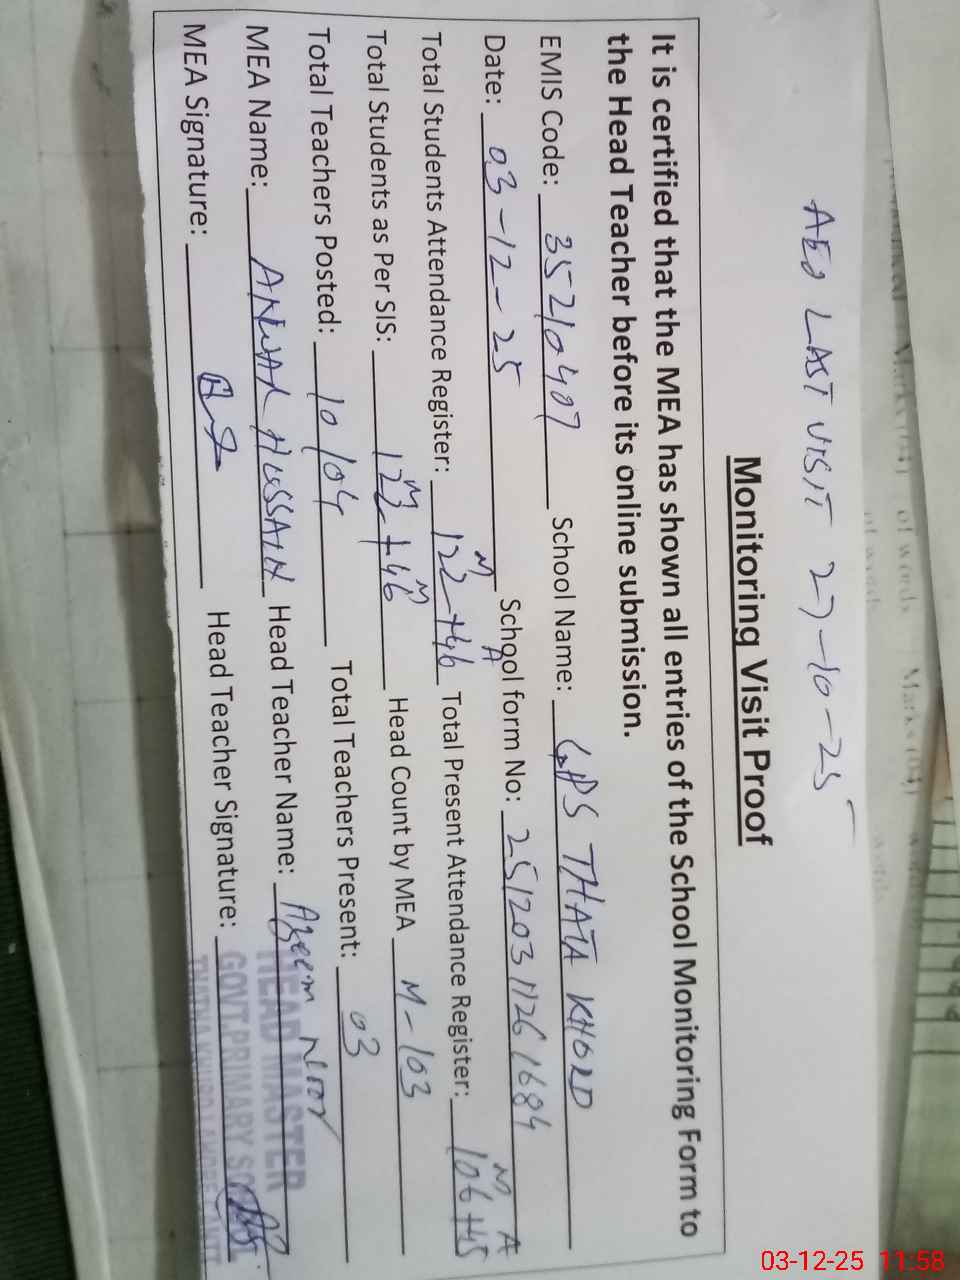 AEO LAST VISIT 27-10-25
Monitoring Visit Proof
It is certified that the MEA has shown all entries of the School Monitoring Form to
the Head Teacher before its online submission.
EMIS Code: 35210407 School Name: GPS THATA KHORD
Date: 03-12-25 School form No: 25120311261684
Total Students Attendance Register: M 122+46 A Total Present Attendance Register: M 106+45 A
Total Students as Per SIS: M 122+46 M Head Count by MEA M-103
Total Teachers Posted: 10 104 Total Teachers Present: 03
MEA Name: ANWAR HUSSAIN Head Teacher Name: Azeem Noor
MEA Signature: Head Teacher Signature:
HEAD MASTER
GOVT.PRIMARY
03-12-25 11:58